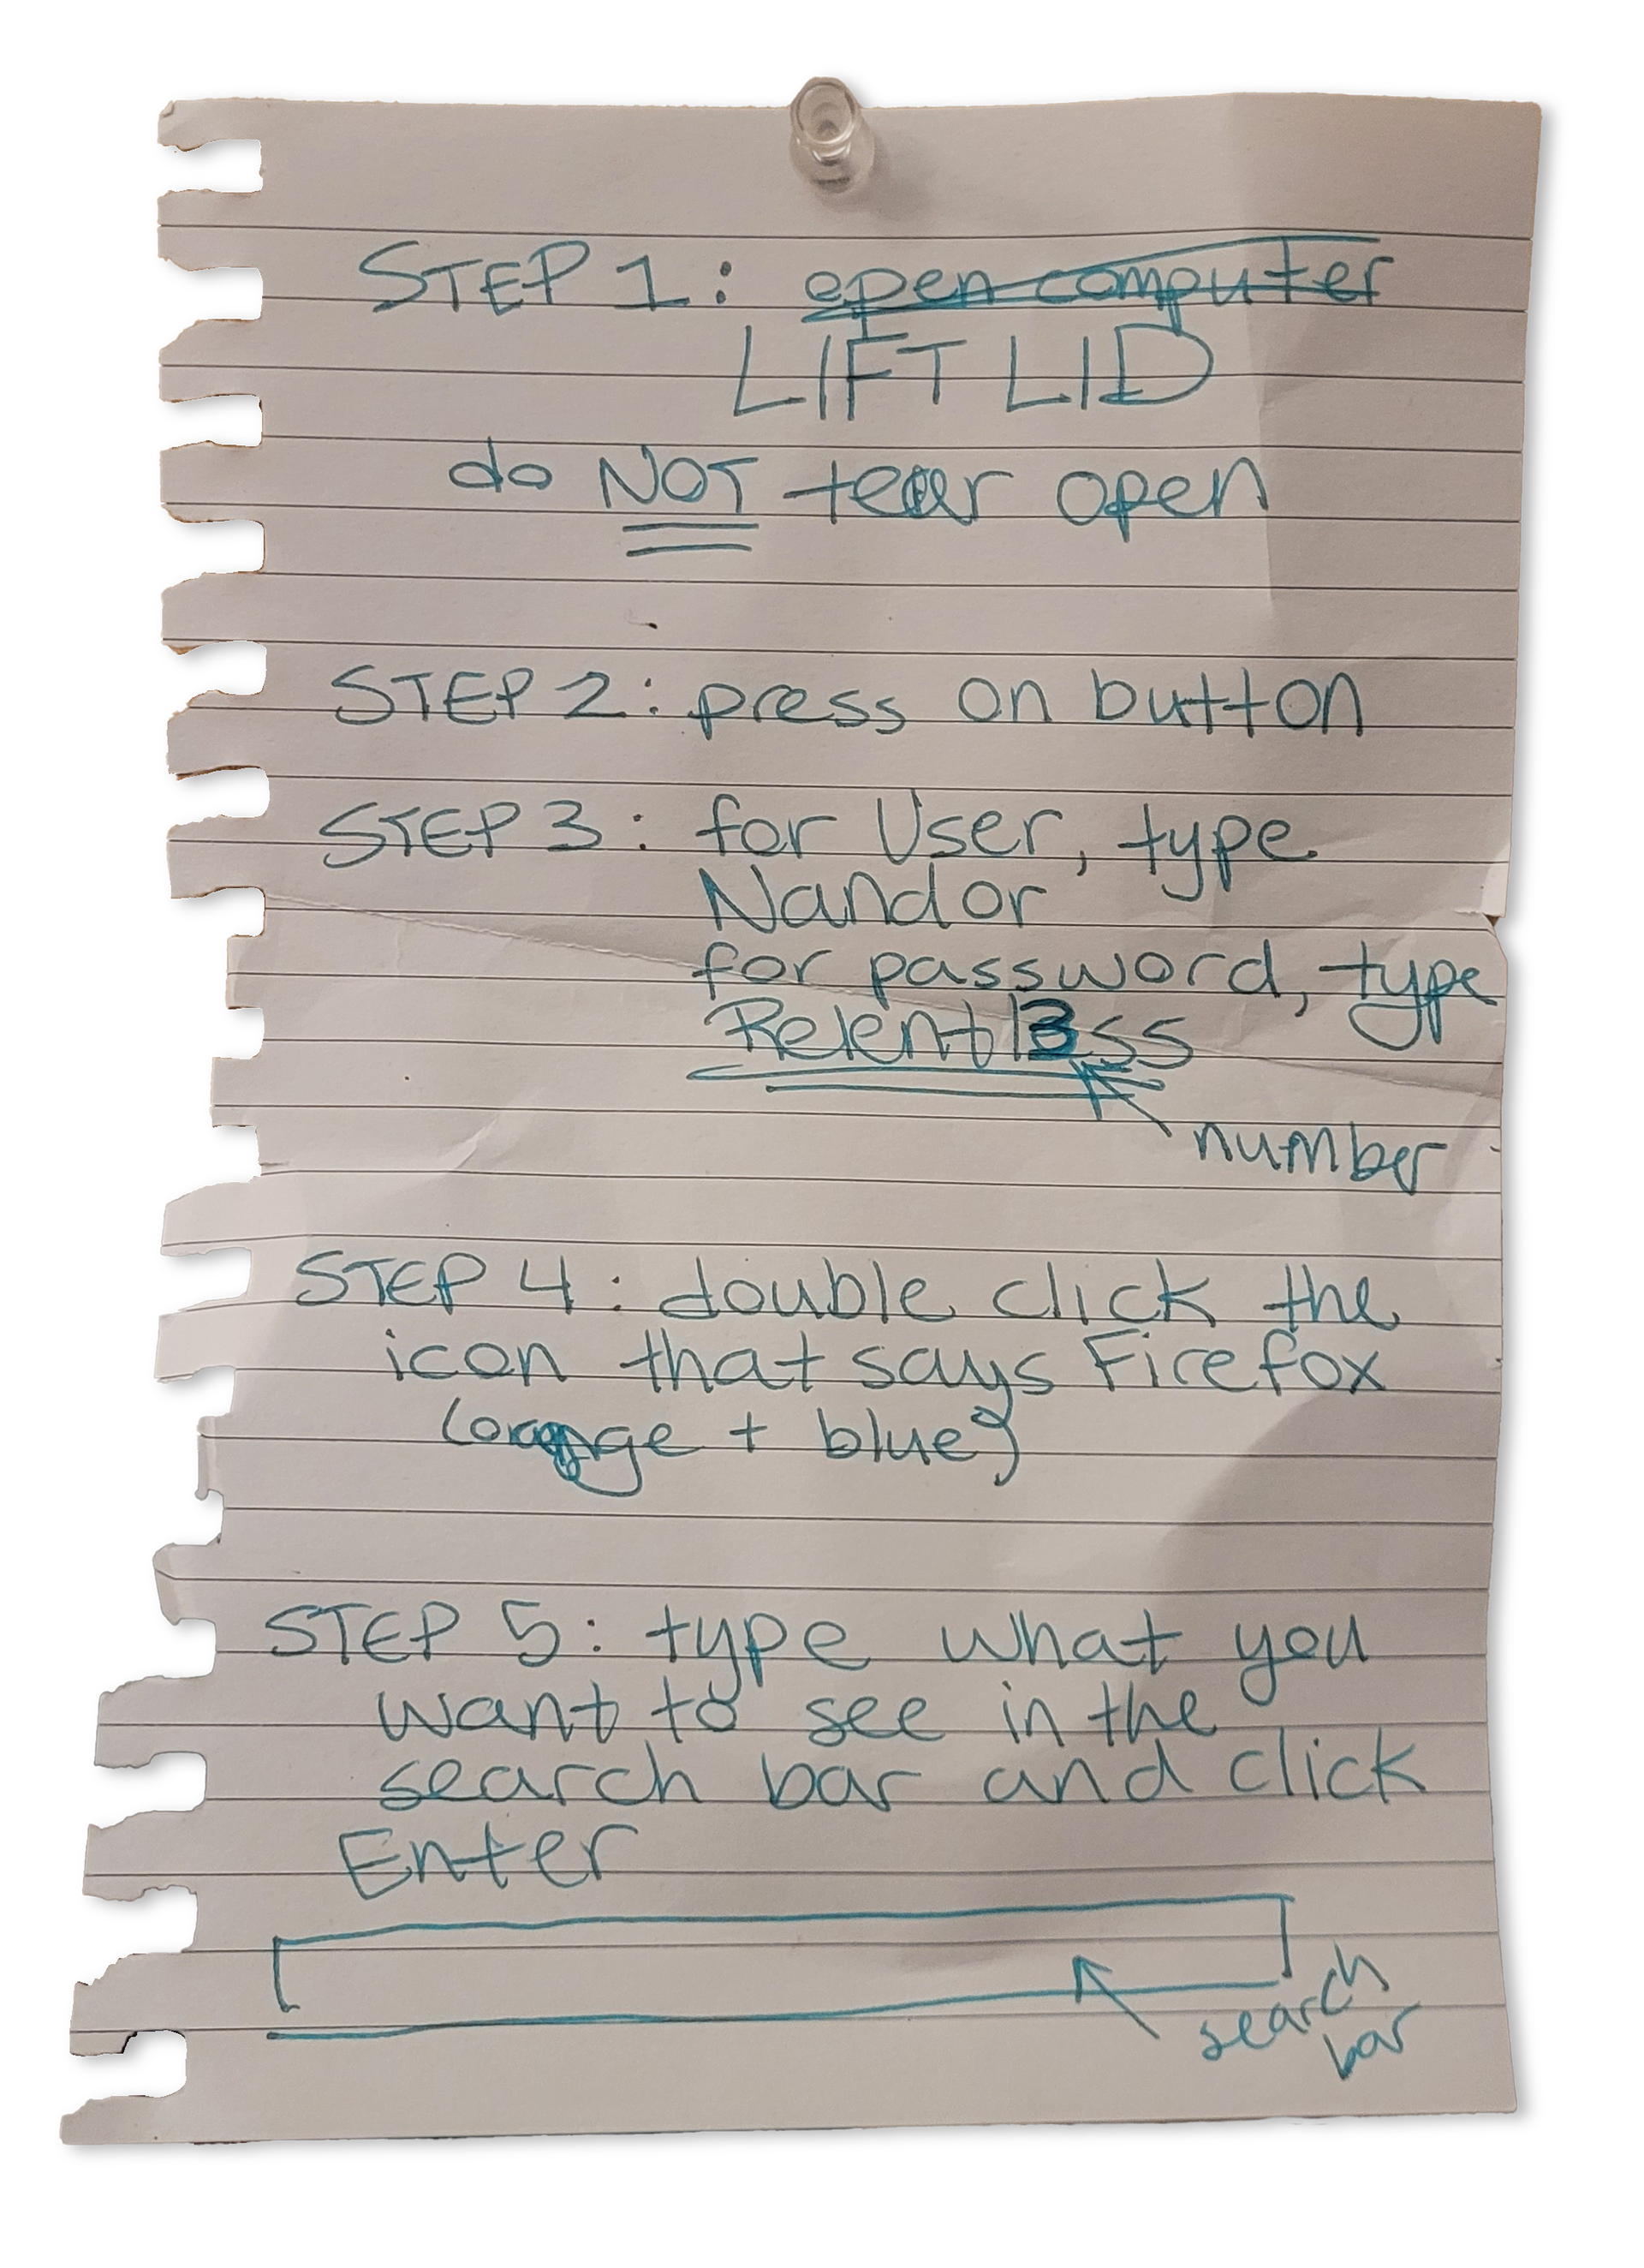 STEP 1: open computer
LIFT LID
do NOT tear open
STEP 2: press on button
STEP 3: for User, type
Nandor
for password, type
Relentl3ss
number
STEP 4: double click the
icon that says Firefox
(orange + blue)
STEP 5: type what you
want to see in the
search bar and click
Enter
search
bar